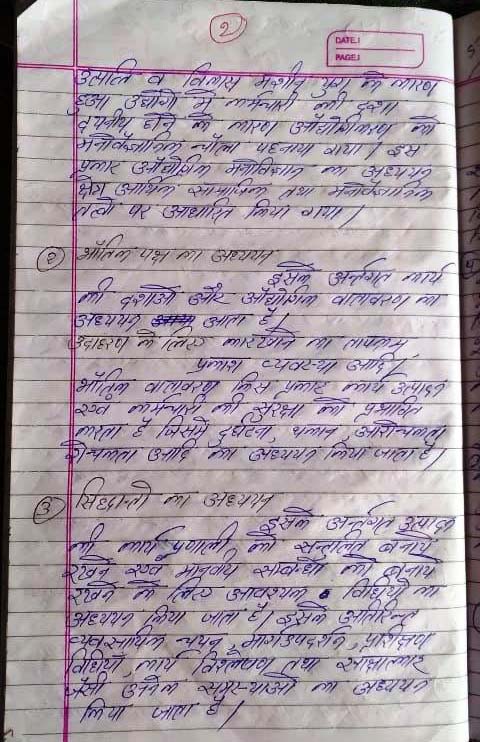 2
DATE.:
PAGE.:
उत्पत्ति व विकास मशीन युग के कारण
हुआ उद्योगों में कर्मचारी की दशा
दयनीय होने के कारण औद्योगिकरण को
मनोवैज्ञानिक चोला पहनाया गया। इस
प्रकार औद्योगिक मनोविज्ञान का अध्ययन
क्षेत्र आर्थिक सामाजिक तथा मनोवैज्ञानिक
तत्वों पर आधारित किया गया।
② भौतिक पक्ष का अध्ययन
इसके अर्न्तगत कार्य
की दशाओं और औद्योगिक वातावरण का
अध्ययन आता है।
उदाहरण के लिए कारखाने का तापक्रम
प्रकाश व्यवस्था आदि।
भौतिक वातावरण किस प्रकार कार्य उत्पादन
एवं कर्मचारी की सुरक्षा को प्रभावित
करता है जिसमें दुर्घटना, थकान,
आदि का अध्ययन किया जाता है।
③ सिद्धान्तों का अध्ययन
इसके अर्न्तगत उत्पादन
की कार्य प्रणाली को सन्तुलित बनाये
रखने एवं मानवीय सम्बन्धों को बनाये
रखने के लिए आवश्यक विधियों का
अध्ययन किया जाता है। इसके अतिरिक्त
व्यवसायिक चयन, मार्गउपदर्शन, प्रशिक्षण
विधियाँ, कार्य विश्लेषण तथा साक्षात्कार
जैसी अनेक समस्याओं का अध्ययन
किया जाता है।